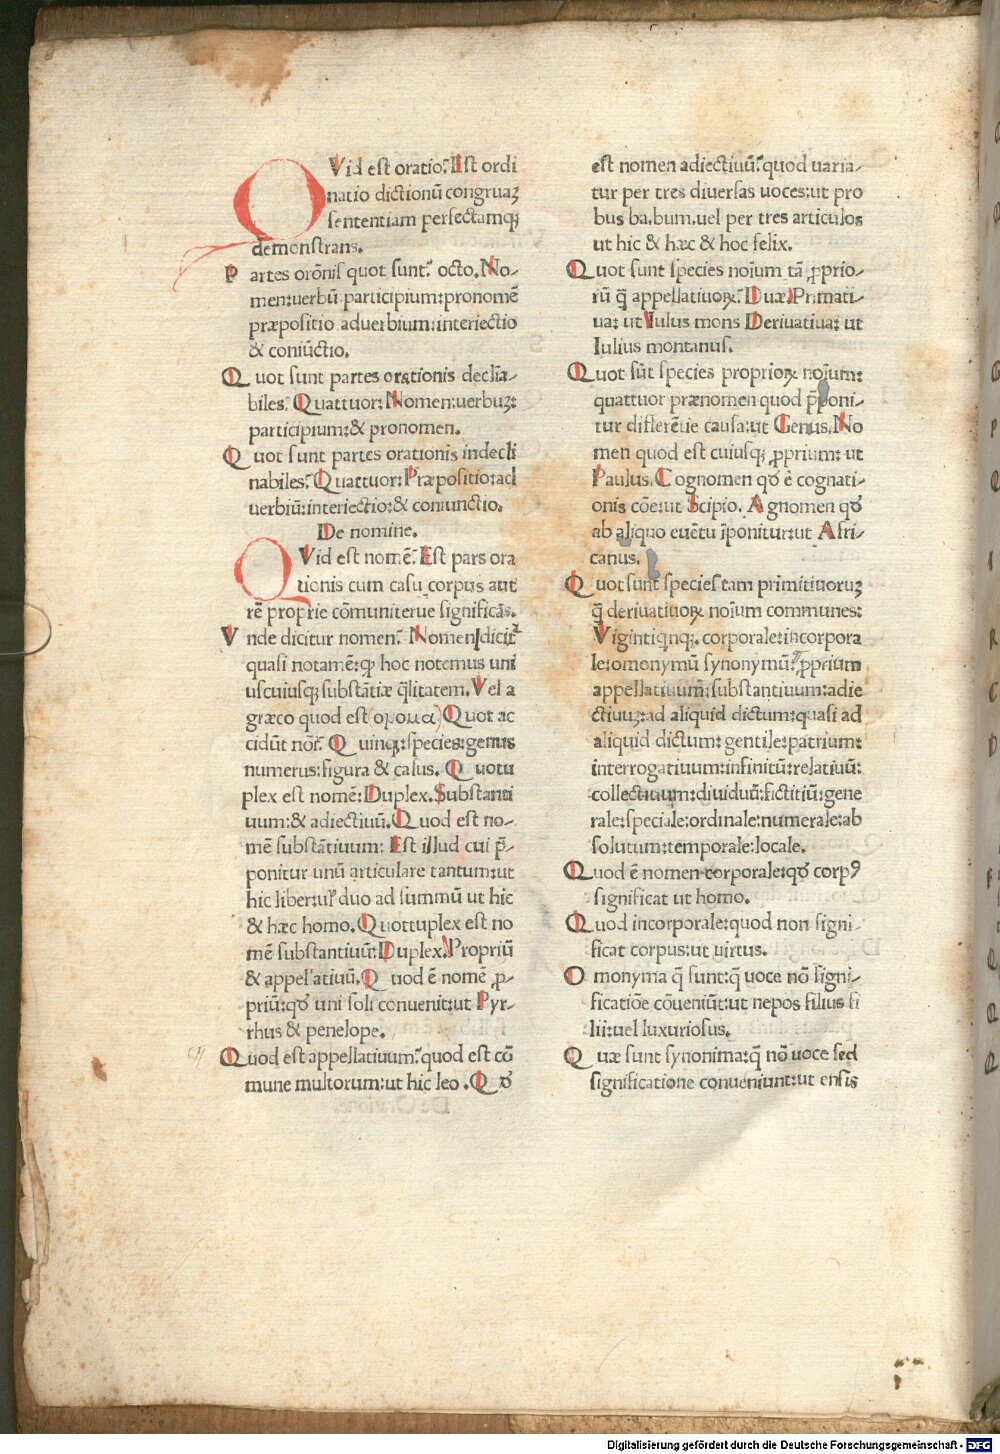 QVid est oratio? Est ordi
natio dictionū congruaꝫ
sententiam perfectamqꝫ
demonstrans.
Partes orōnis quot sunt? octo. No-
men: uerbū participium: pronomē
præpositio aduerbium: interiectio
& coniūctio.
Quot sunt partes orationis declīa-
biles. Quattuor: Nomen: uerbuꝫ:
participium: & pronomen.
Quot sunt partes orationis indecli
nabiles? Quattuor: Præpositio: ad
uerbiū: interiectio: & coniunctio.
De nomine.
QVid est nomē? Est pars ora
tionis cum casu corpus aut
rē proprie cōmuniterue significās.
Vnde dicitur nomen? Nomen dicit᷑
quasi notamē: ꝙ hoc notemus uni
uscuiusqꝫ substātiæ q̄litatem. Vel a
græco quod est ονομα. Quot ac
cidūt nōī? Quinqꝫ: species: genus
numerus: figura & casus. Quotu
plex est nomē: Duplex. Substanti
uum: & adiectiuū. Quod est no-
mē substātiuum: Est illud cui p̄-
ponitur unū articulare tantum: ut
hic liber: ul̛ duo ad summū ut hic
& hæc homo. Quottuplex est no
mē substantiuū: Duplex. Propriū
& appellatiuū. Quod ē nomē ꝓ-
priū: qđ uni soli conuenit: ut Pyr-
rhus & penelope.
Quod est appellatiuum? quod est cō
mune multorum: ut hic leo. Qđ
est nomen adiectiuū? quod uaria-
tur per tres diuersas uoces: ut pro
bus ba. bum. uel per tres articulos
ut hic & hæc & hoc felix.
Quot sunt species noīum tā ꝓprio-
rū q̄ appellatiuoꝝ? Duæ. Primati-
ua: ut Iulus mons Deriuatiua: ut
Iulius montanus.
Quot sūt species proprioꝝ noīum:
quattuor prænomen quod p̄poni-
tur differētie causa: ut Genus. No
men quod est cuiusqꝫ ꝓprium: ut
Paulus. Cognomen qđ ē cognati-
onis cōe: ut Scipio. Agnomen qđ
ab aliquo euētu īponitur: ut Afri-
canus.
Quot sunt species tam primitiuoruꝫ
q̄ deriuatiuoꝝ noīum communes:
Vigintiqnqꝫ. corporale: incorpora
le: omonymū synonymū: ꝓprium
appellatiuum: substantiuum: adie
ctiuuꝫ: ad aliquid dictum: quasi ad
aliquid dictum: gentile: patrium:
interrogatiuum: infinitū: relatiuū:
collectiuum: diuiduū: fictitiū: gene
rale: speciale: ordinale: numerale: ab
solutum: temporale: locale.
Quod ē nomen corporale: qđ corpꝰ
significat ut homo.
Quod incorporale: quod non signi-
ficat corpus: ut uirtus.
Omonyma q̄ sunt: q̄ uoce nō signi-
ficatiōe cōueniūt: ut nepos filius fi
lii: uel luxuriosus.
Quæ sunt synonima: q̄ nō uoce sed
significatione conueniunt: ut ensis
Digitalisierung gefördert durch die Deutsche Forschungsgemeinschaft - DFG